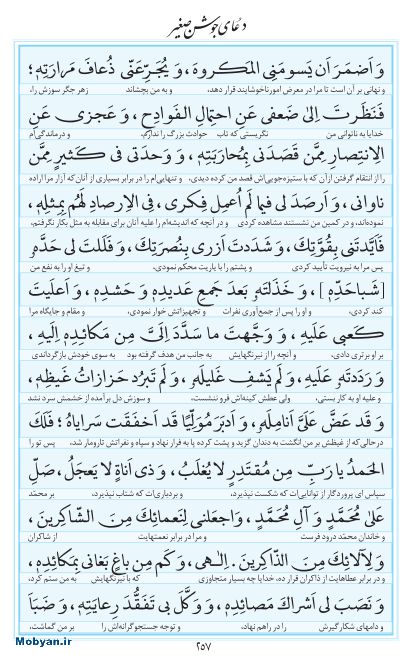 دعای جوشن صغیر
وَ اَضمَرَ اَن یَسومَنِی المَکروهَ، وَ یُجَرِّعَنّی ذُعافَ مَرارَتِهِ؛
و نهانی بر آن است تا مرا در معرض امور ناخوشایند قرار دهد، و به من بچشاند زهر جگر سوزش را،
فَنَظَرتَ اِلیٰ ضَعفی عَنِ احتِمالِ الفَوادِحِ، وَ عَجزی عَنِ
خدایا به ناتوانی من نگریستی که تاب حوادث بزرگ را ندارم، و درماندگی‌ام
الاِنتِصارِ مِمَّن قَصَدَنی بِمُحارَبَتِهِ، وَ وَحدَتی فی کَثیرٍ مِمَّن
را از انتقام گرفتن از آن که با ستیزه‌جویی‌اش قصد من کرده دیدی، و تنهایی‌ام را در برابر بسیاری از آنان که آزار مرا اراده
ناوانی، وَ اَرصَدَ لی فیما لَم اُعمِل فِکری، فِی الاِرصادِ لَهُم بِمِثلِهِ،
نموده‌اند، و در کمین من نشستند مشاهده کردی و در آنچه که اندیشه‌ام را علیه آنان برای مقابله به مثل بکار نگرفتم،
فَاَیَّدتَنی بِقُوَّتِکَ، وَ شَدَدتَ اَزری بِنُصرَتِکَ، وَ فَلَلتَ لی حَدَّهُ
پس مرا به نیرویت تأیید کردی و پشتم را با یاریت محکم نمودی، و تیغ او را به نفع من
[شَباحَدِّهِ]، وَ خَذَلتَهُ بَعدَ جَمعِ عَدیدِهِ وَ حَشدِهِ، وَ اَعلَیتَ
کند کردی، و او را پس از جمع‌آوری نفرات و تجهیزاتش خوار نمودی، و مقام و جایگاه مرا
کَعبی عَلَیهِ، وَ وَجَّهتَ ما سَدَّدَ اِلَیَّ مِن مَکائِدِهِ اِلَیهِ،
بر او برتری دادی، و آنچه را از نیرنگهایش به جانب من هدف گرفته بود به سوی خودش بازگرداندی
وَ رَدَدتَهُ عَلَیهِ، وَ لَم یَشفِ غَلیلَهُ، وَ لَم تَبرُد حَزازاتُ غَیظِهِ،
و علیه او به کار بستی، ولی عطش کینه‌اش فرو ننشست، و سوزش دل برآمده از خشمش سرد نشد
وَ قَد عَضَّ عَلَیَّ اَنامِلَهُ، وَ اَدبَرَ مُوَلِّیًا قَد اَخفَقَت سَرایاهُ؛ فَلَکَ
درحالی‌که از غیظش بر من انگشت به دندان گزید و پشت کرده پا به فرار نهاد و سپاه و نفراتش تارومار شد، پس تو را
الحَمدُ یا رَبِّ مِن مُقتَدِرٍ لا یُغلَبُ، وَ ذی اَناةٍ لا یَعجَلُ، صَلِّ
سپاس ای پروردگار از توانایی‌ات که شکست نپذیرد، و بردباری‌ات که شتاب نپذیرد، بر محمّد
عَلیٰ مُحَمَّدٍ وَ آلِ مُحَمَّدٍ، وَ اجعَلنی لِنَعمائِکَ مِنَ الشّاکِرینَ،
و خاندان محمّد درود فرست و مرا در برابر نعمتهایت از شاکران
وَ لِآلائِکَ مِنَ الذّاکِرینَ. اِلٰهی، وَ کَم مِن باغٍ بَغانی بِمَکائِدِهِ،
و در برابر عطاهایت از ذاکران قرار ده، خدایا چه بسیار متجاوزی که با نیرنگهایش به من ستم کرد،
وَ نَصَبَ لی اَشراکَ مَصائِدِهِ، وَ وَکَّلَ بی تَفَقُّدَ رِعایَتِهِ، وَ ضَبَاَ
و دامهای شکارگیرش را در راهم نهاد، و توجه جستجوگرانه‌اش را بر من گماشت،
۲۵۷
Mobyan.ir